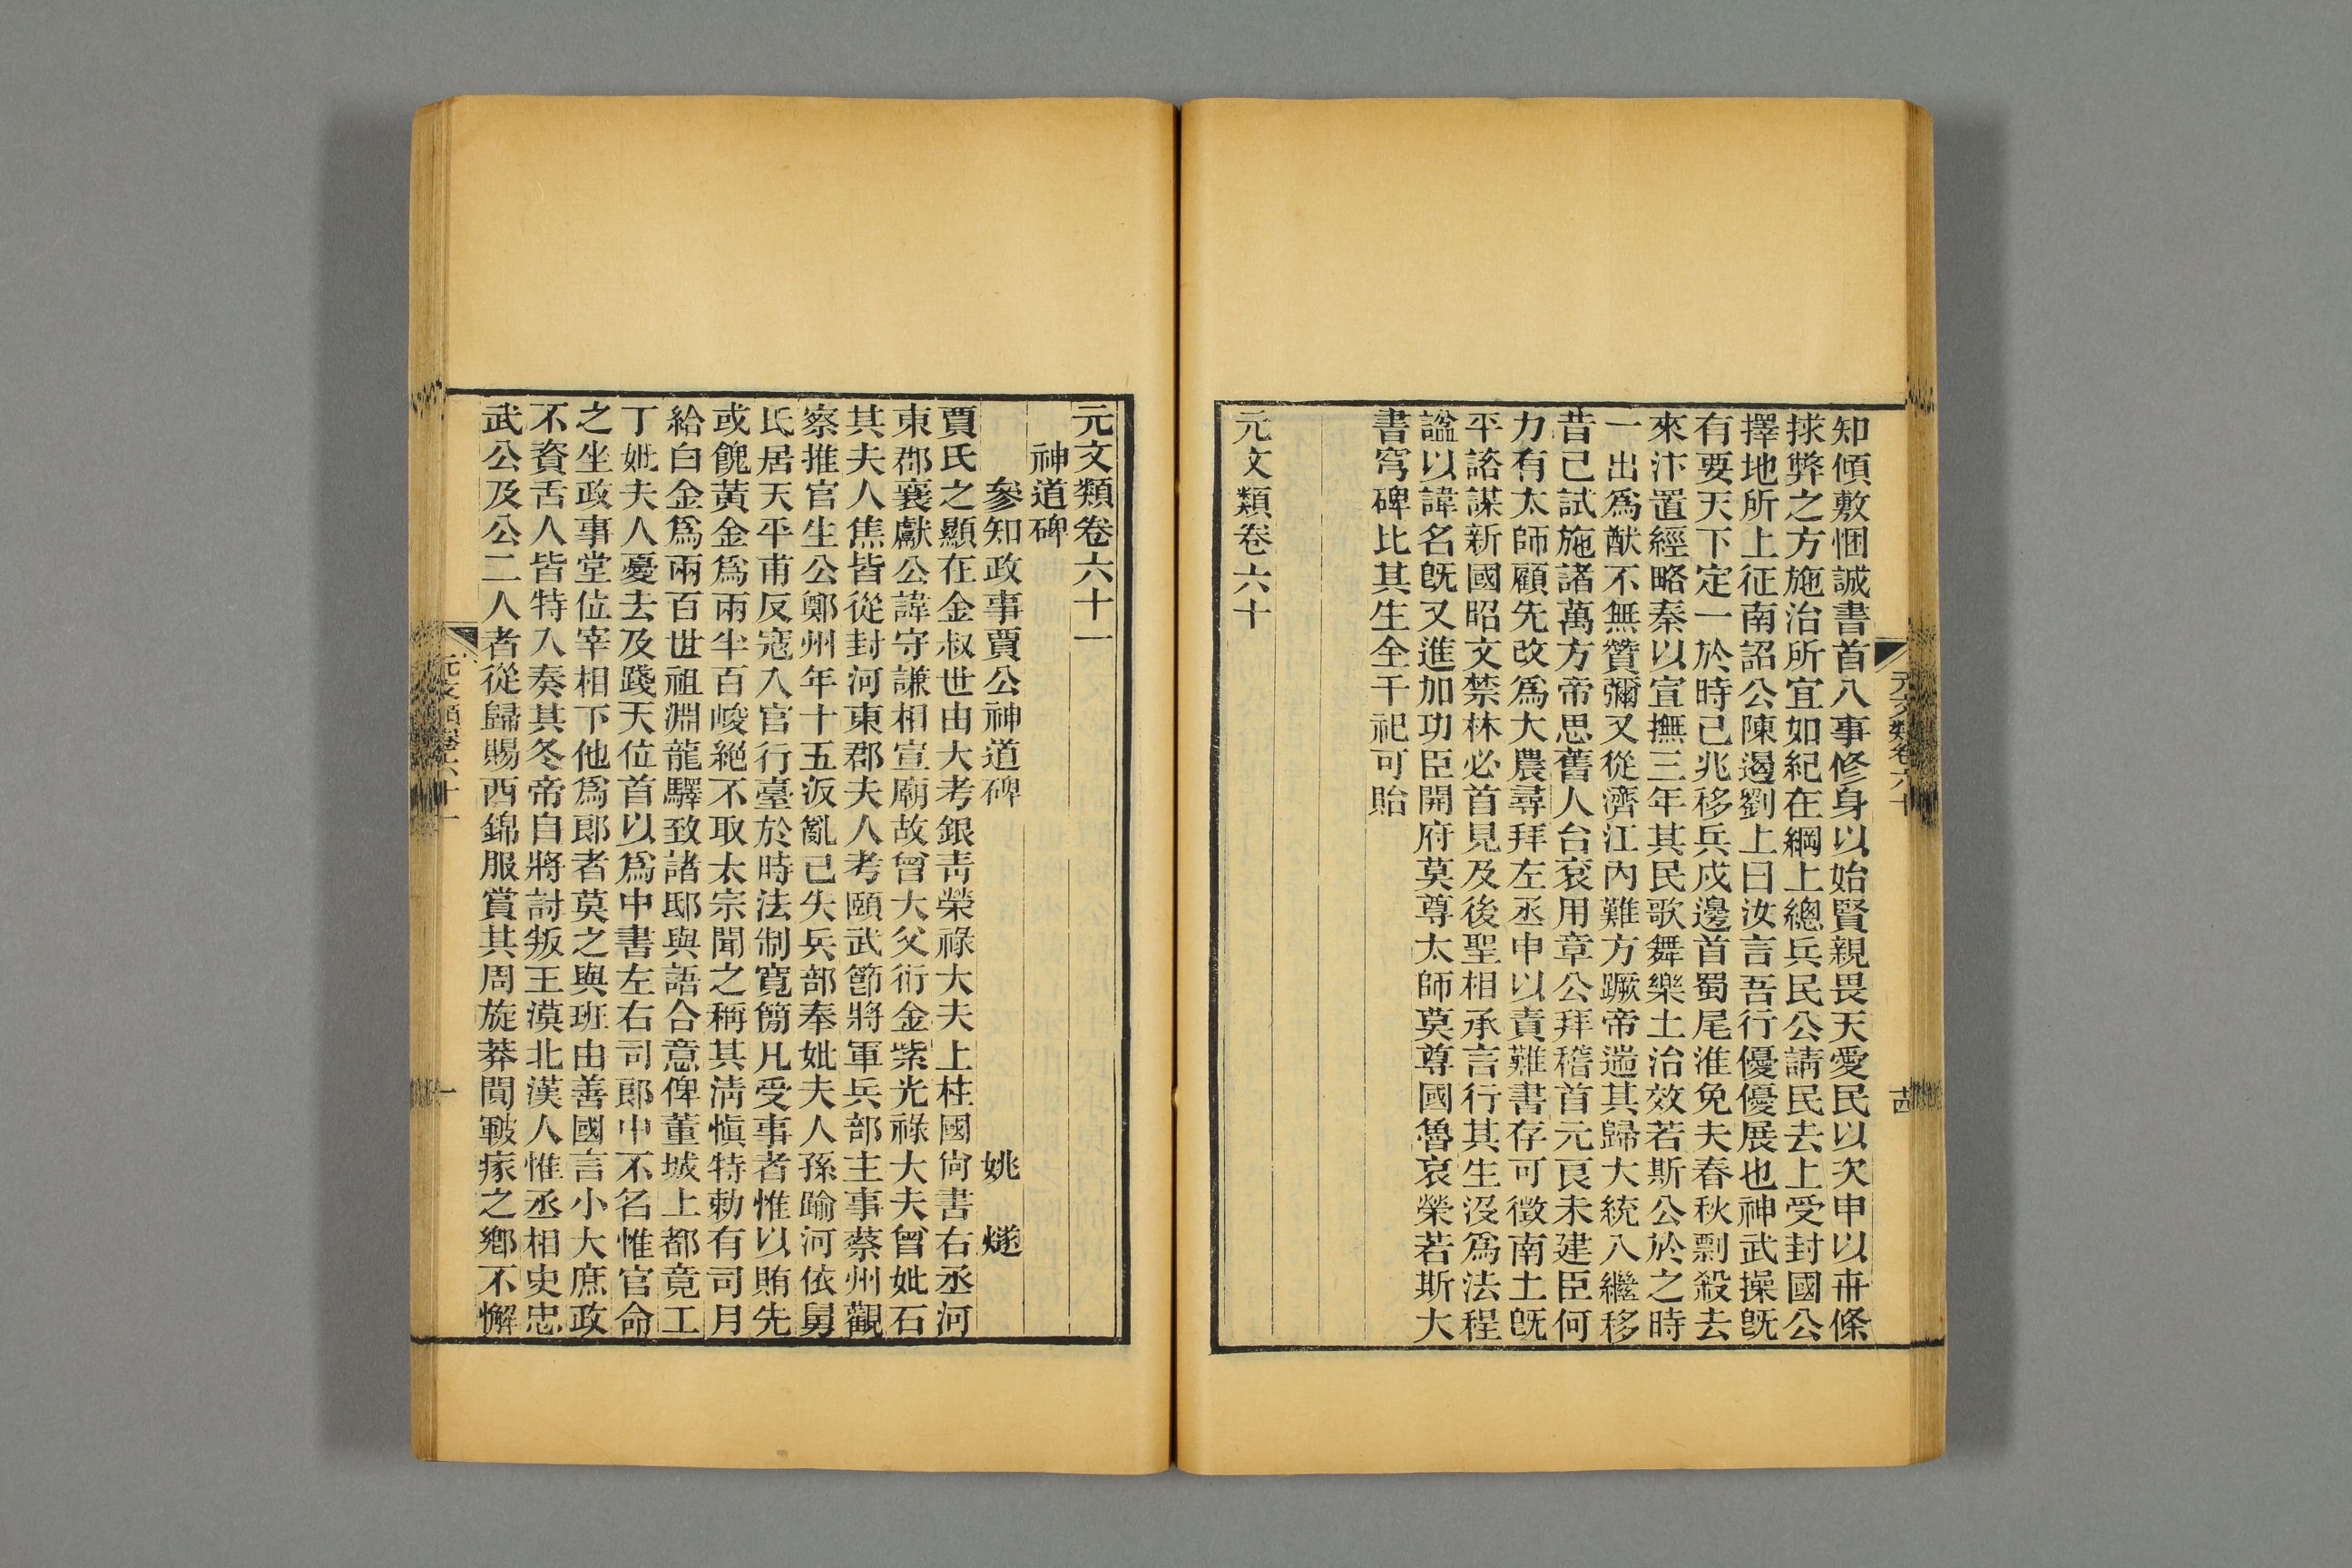 知傾敷悃誠書首八事修身以始賢親畏天愛民以次申以卅條
捄弊之方施治所宜如紀在綱上總兵民公請民去上受封國公
擇地所上征南詔公陳遏劉上曰汝言吾行優優展也神武操旣
有要天下定一於時己兆移兵戍邊首蜀尾淮免夫春秋剽殺去
來汴置經略秦以宣撫三年其民歌舞樂土治效若斯公於之時
一出爲猷不無贊彌又從濟江內難方蹶帝遄其歸大統入繼移
昔己試施諸萬方帝思舊人台衮用章公拜稽首元良未建臣何
力有太師顧先改爲大農尋拜左丞申以責難書存可徵南土旣
平諮謀新國昭文禁林必首見及後聖相承言行其生沒爲法程
諡以諱名旣又進加功臣開府莫尊太師莫尊國魯哀榮若斯大
書穹碑比其生全干祀可貽
元文類卷六十
元文類卷六十
古
元文類卷六十一
神道碑
參知政事賈公神道碑 姚燧
賈氏之顯在金叔世由大考銀靑榮祿大夫上柱國尙書右丞河
東郡襄獻公諱守謙相宣廟故曾大父衎金紫光祿大夫曾妣石
其夫人焦皆從封河東郡夫人考頤武節將軍兵部主事蔡州觀
察推官生公鄭州年十五汳亂已失兵部奉妣夫人孫踰河依舅
氏居天平甫反冦入官行臺於時法制寬簡凡受事者惟以賄先
或餽黃金爲兩半百峻絕不取太宗聞之稱其淸愼特勅有司月
給白金爲兩百世祖淵龍驛致諸邸與語合意俾董城上都竟工
丁妣夫人憂去及踐天位首以爲中書左右司郞中不名惟官命
之坐政事堂位宰相下他爲郞者莫之與班由善國言小大庶政
不資舌人皆特入奏其冬帝自將討叛王漠北漢人惟丞相史忠
武公及公二人者從歸賜西錦服賞其周旋莽閒皸瘃之鄕不懈
元文類卷六十一
一